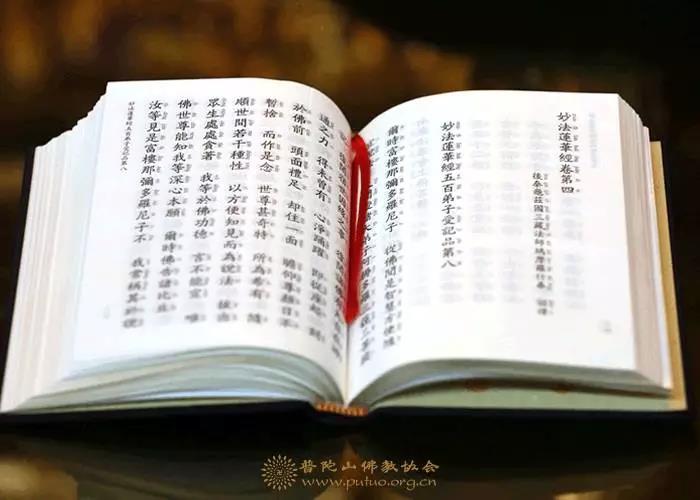 妙法蓮華經卷第四
後秦龜茲國三藏法師鳩摩羅什奉 詔譯
妙法蓮華經五百弟子受記品第八
爾時富樓那彌多羅尼子 從佛聞是智慧方便隨
大弟子阿耨多羅三藐三菩
復聞宿世因緣之事 復聞
通之力 得未曾有 心淨踊躍 即從座起 到
於佛前 頭面禮足 却住一面 瞻仰尊顏目不
暫捨 而作是念 世尊甚奇特 所為希有 隨
順世間若干種性 以方便知見而為說法 拔出
眾生處處貪著 我等於佛功德 言不能宣 唯
佛世尊能知我等深心本願 爾時佛告諸比丘
汝等見是富樓那彌多羅尼子不 我常稱其於說
妙法蓮華經五百弟子受記品第八
普陀山佛教协会
www.putuo.org.cn